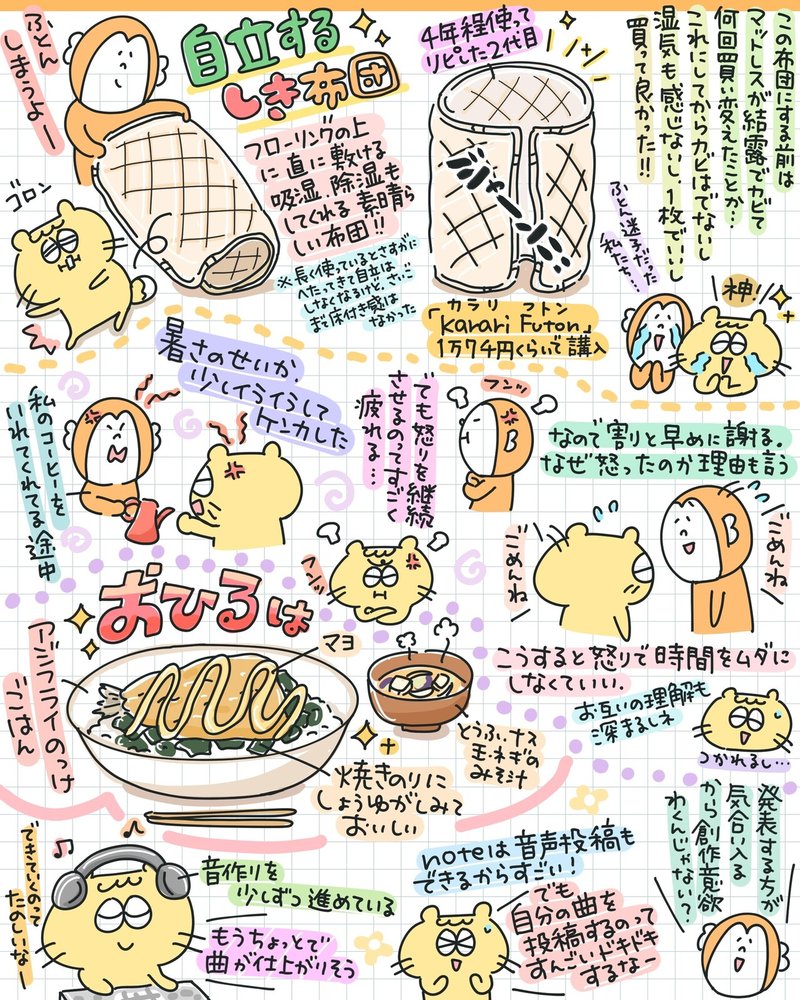 自立する
しき布団
ふとん
しまうよー
ゴロン
フローリングの上
に直に敷ける
吸湿、除湿も
してくれる素晴ら
しい布団!!
※長く使っているとさすがに
へたってきて自立は
しなくなるけど、さいご
まで床付き感は
なかった
4年程使って
リピした2代目
ジャーン
カラリ フトン
「Karari Futon」
1万7千円くらいで講入
この布団にする前は
マットレスが結露でカビて
何回買い変えたことか…
これにしてからカビはでないし
湿気も感じないし、1枚でいいし
買って良かった!!
ふとん迷子だった
私たち…
神!
暑さのせいか、
少しイライラして
ケンカした
私のコーヒーを
いれてくれてる途中
でも怒りを継続
させるのってすごく
疲れる…
フンッ
フンッ
なので割りと早めに謝る。
なぜ怒ったのか理由も言う
ごめんね
ごめんね
こうすると怒りで時間をムダに
しなくていい.
お互いの理解も
深まるしネ
つかれるし…
おひるは
アジフライのっけ
ごはん
マヨ
焼きのりに
しょうゆがしみて
おいしい
とうふ、ナス
玉ネギの
みそ汁
できていくのって
たのしいなー
音作りを
少しずつ進めている
もうちょっとで
曲が仕上がりそう
noteは音声投稿も
できるからすごい!
でも
自分の曲を
投稿するのって
すんごいドキドキ
するなー
発表する方が
気合い入る
から創作意欲
わくんじゃない?